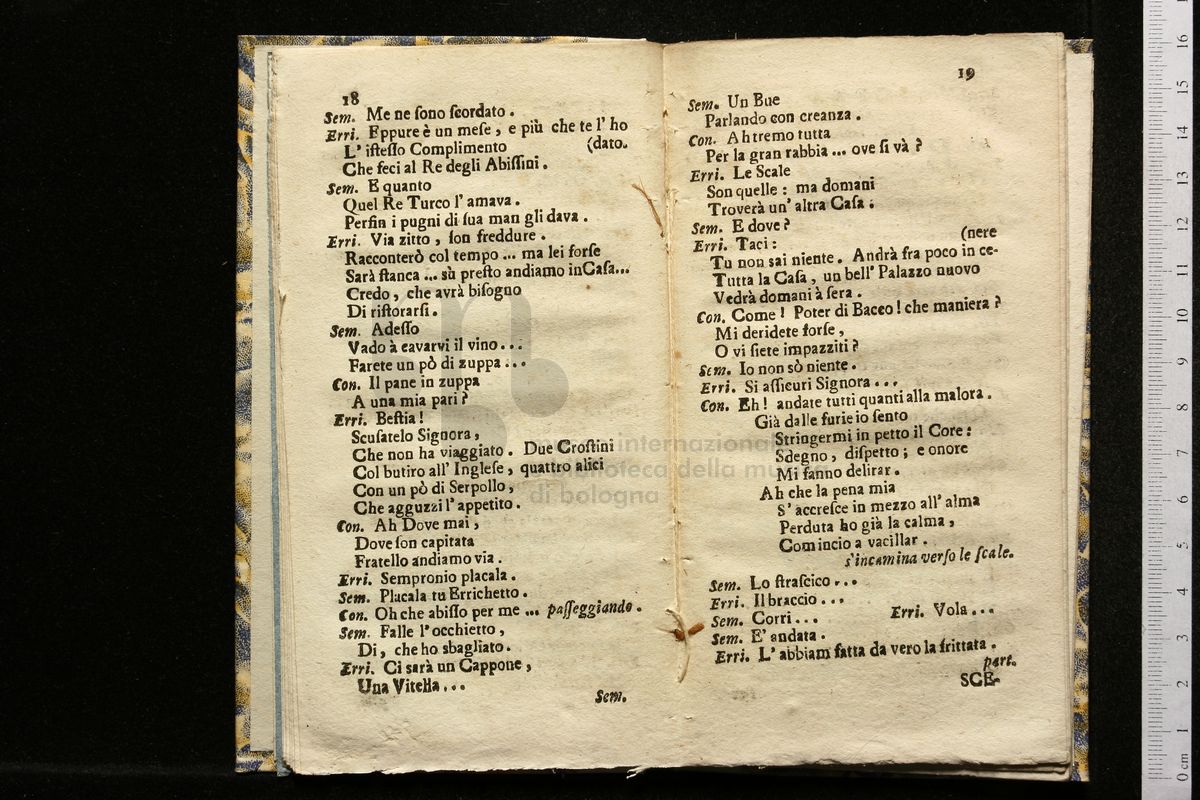 18
Sem. Me ne ſono ſcordato.
Erri. Eppure è un meſe, e più che te l' ho
L' iſteſſo Complimento (dato.
Che feci al Re degli Abiſſini.
Sem. E quanto
Quel Re Turco l' amava.
Perfin i pugni di ſua man gli dava.
Erri. Via zitto, ſon freddure.
Racconterò col tempo ... ma lei forſe
Sarà ſtanca ... sù preſto andiamo inCaſa...
Credo, che avrà biſogno
Di riſtorarſi.
Sem. Adeſſo
Vado à cavarvi il vino...
Farete un pò di zuppa...
Con. Il pane in zuppa
A una mia pari?
Erri. Beſtia!
Scuſatelo Signora,
Che non ha viaggiato. Due Croſtini
Col butiro all' Ingleſe, quattro alici
Con un pò di Serpollo,
Che agguzzi l' appetito.
Con. Ah Dove mai,
Dove ſon capitata
Fratello andiamo via.
Erri. Sempronio placala.
Sem. Placala tu Errichetto.
Con. Oh che abiſſo per me ... paſſeggiando.
Sem. Falle l'occhietto,
Di, che ho sbagliato.
Erri. Ci sarà un Cappone,
Una Vitella...
Sem.
19
Sem. Un Bue
Parlando con creanza.
Con. Ah tremo tutta
Per la gran rabbia ... ove ſi và?
Erri. Le Scale
Son quelle: ma domani
Troverà un' altra Caſa:
Sem. E dove?
Erri. Taci: (nere
Tu non sai niente. Andrà fra poco in ce-
Tutta la Caſa, un bell' Palazzo nuovo
Vedrà domani à ſera.
Con. Come! Poter di Bacco! che maniera?
Mi deridete forſe,
O vi ſiete impazziti?
Sem. Io non sò niente.
Erri. Si aſſicuri Signora...
Con. Eh! andate tutti quanti alla malora.
Già dalle furie io ſento
Stringermi in petto il Core:
Sdegno, diſpetto; e onore
Mi fanno delirar.
Ah che la pena mia
S' accreſce in mezzo all' alma
Perduta ho già la calma,
Comincio a vacillar.
s'incamina verſo le ſcale.
Sem. Lo ſtraſcico...
Erri. Il braccio...
Sem. Corri... Erri. Vola...
Sem. E' andata.
Erri. L' abbiam fatta da vero la frittata.
part.
SCE-
museo internazionale
biblioteca della musica
di bologna
0 cm 1 2 3 4 5 6 7 8 9 10 11 12 13 14 15 16